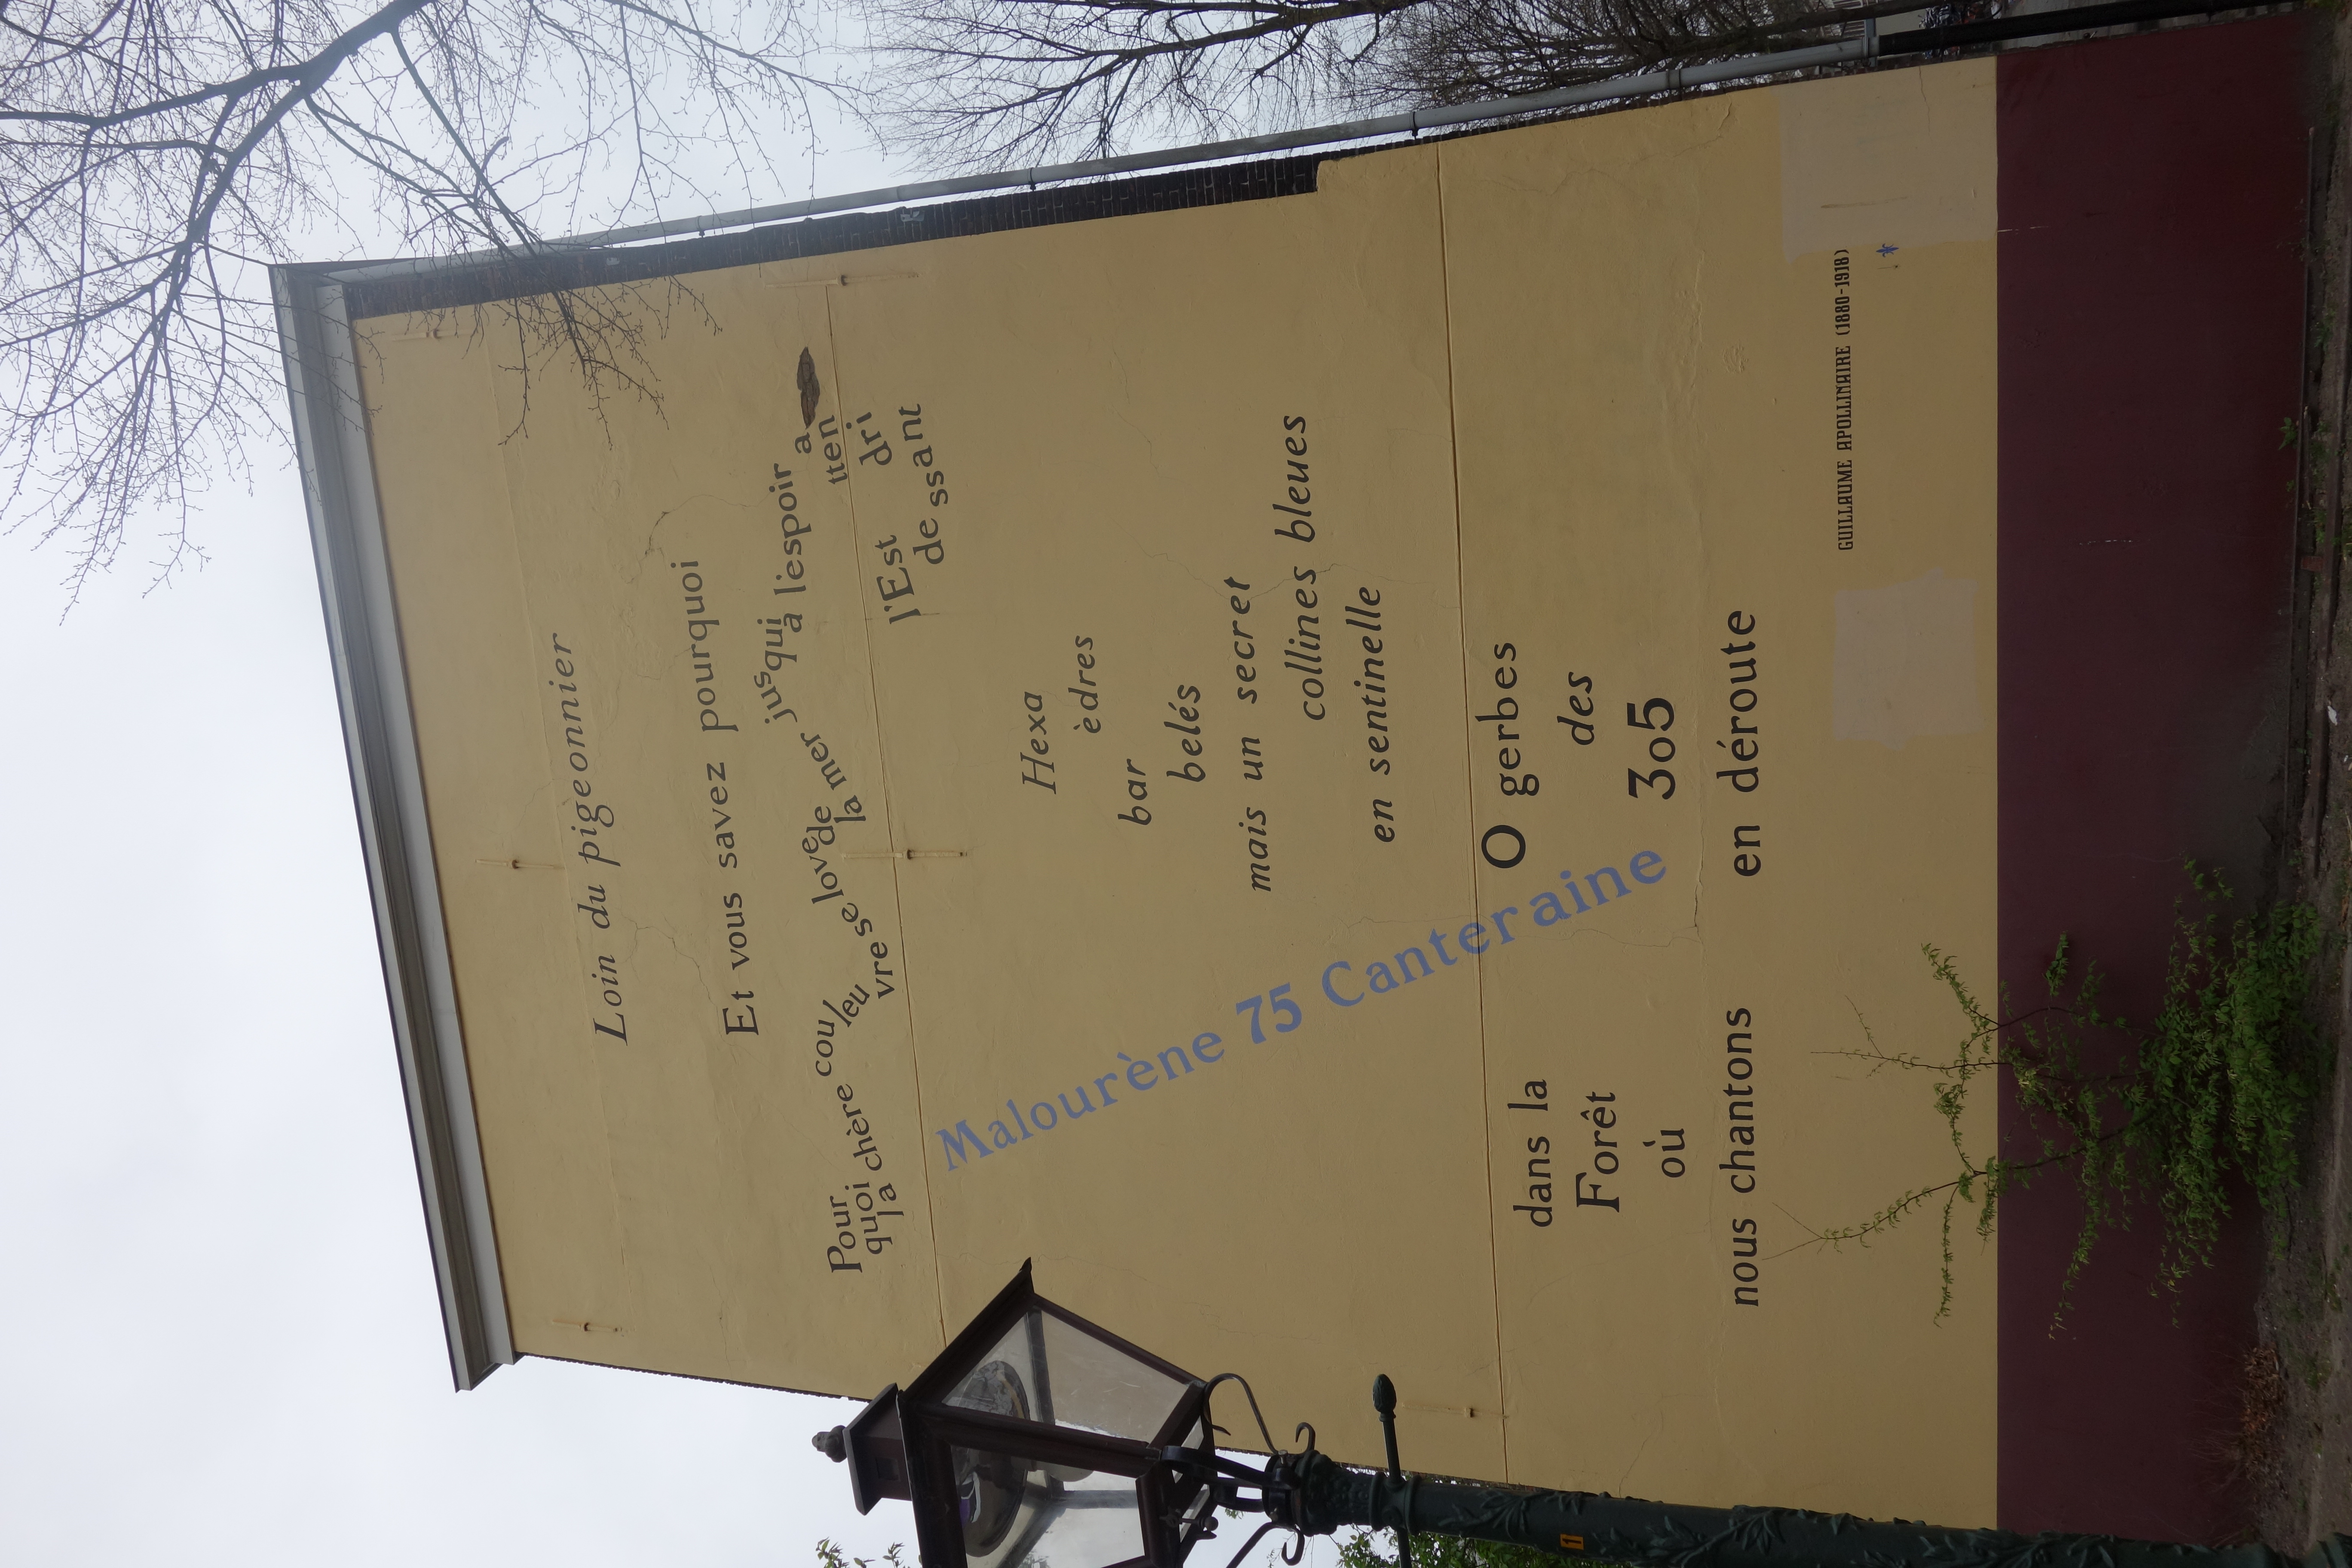 Loin du pigeonnier
Et vous savez pourquoi
Pour
quoi
la chère cou
leu
vre
se love
de
la mer jusqu'à l'espoir
a
tten
dri
ssant
de
l'Est
Malourène 75 Canteraine
Hexa
èdres
bar
belés
mais un secret
collines bleues
en sentinelle
dans la
Forêt
où
nous chantons
O gerbes
des
305
en déroute
GUILLAUME APOLLINAIRE (1880-1918)
1